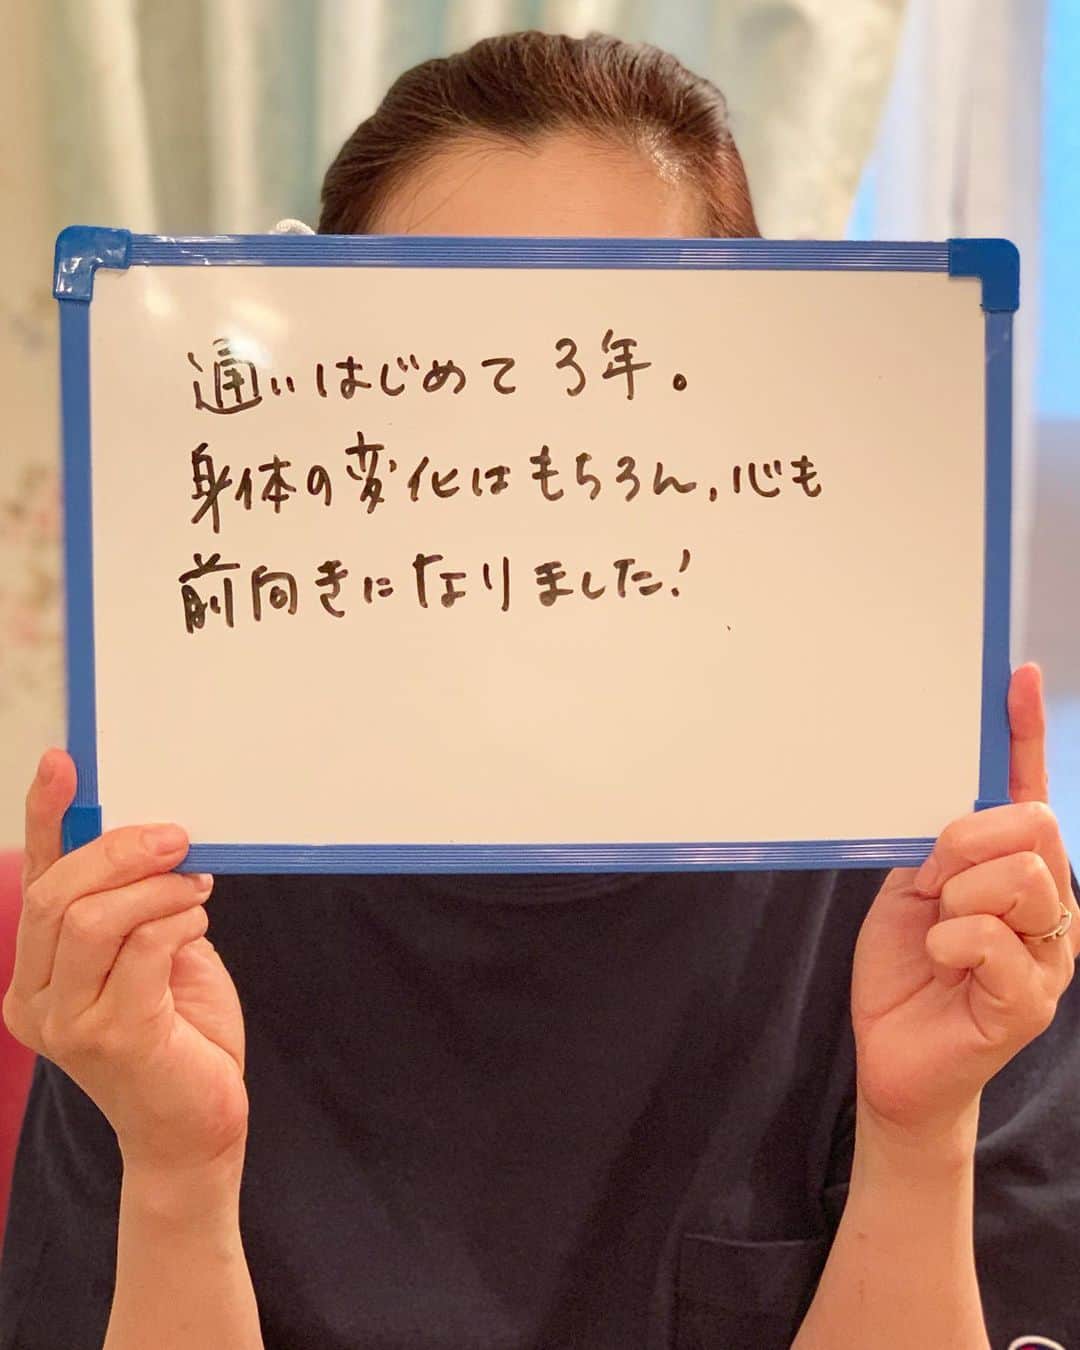 通いはじめて3年。
身体の変化はもちろん、心も
前向きになりました!